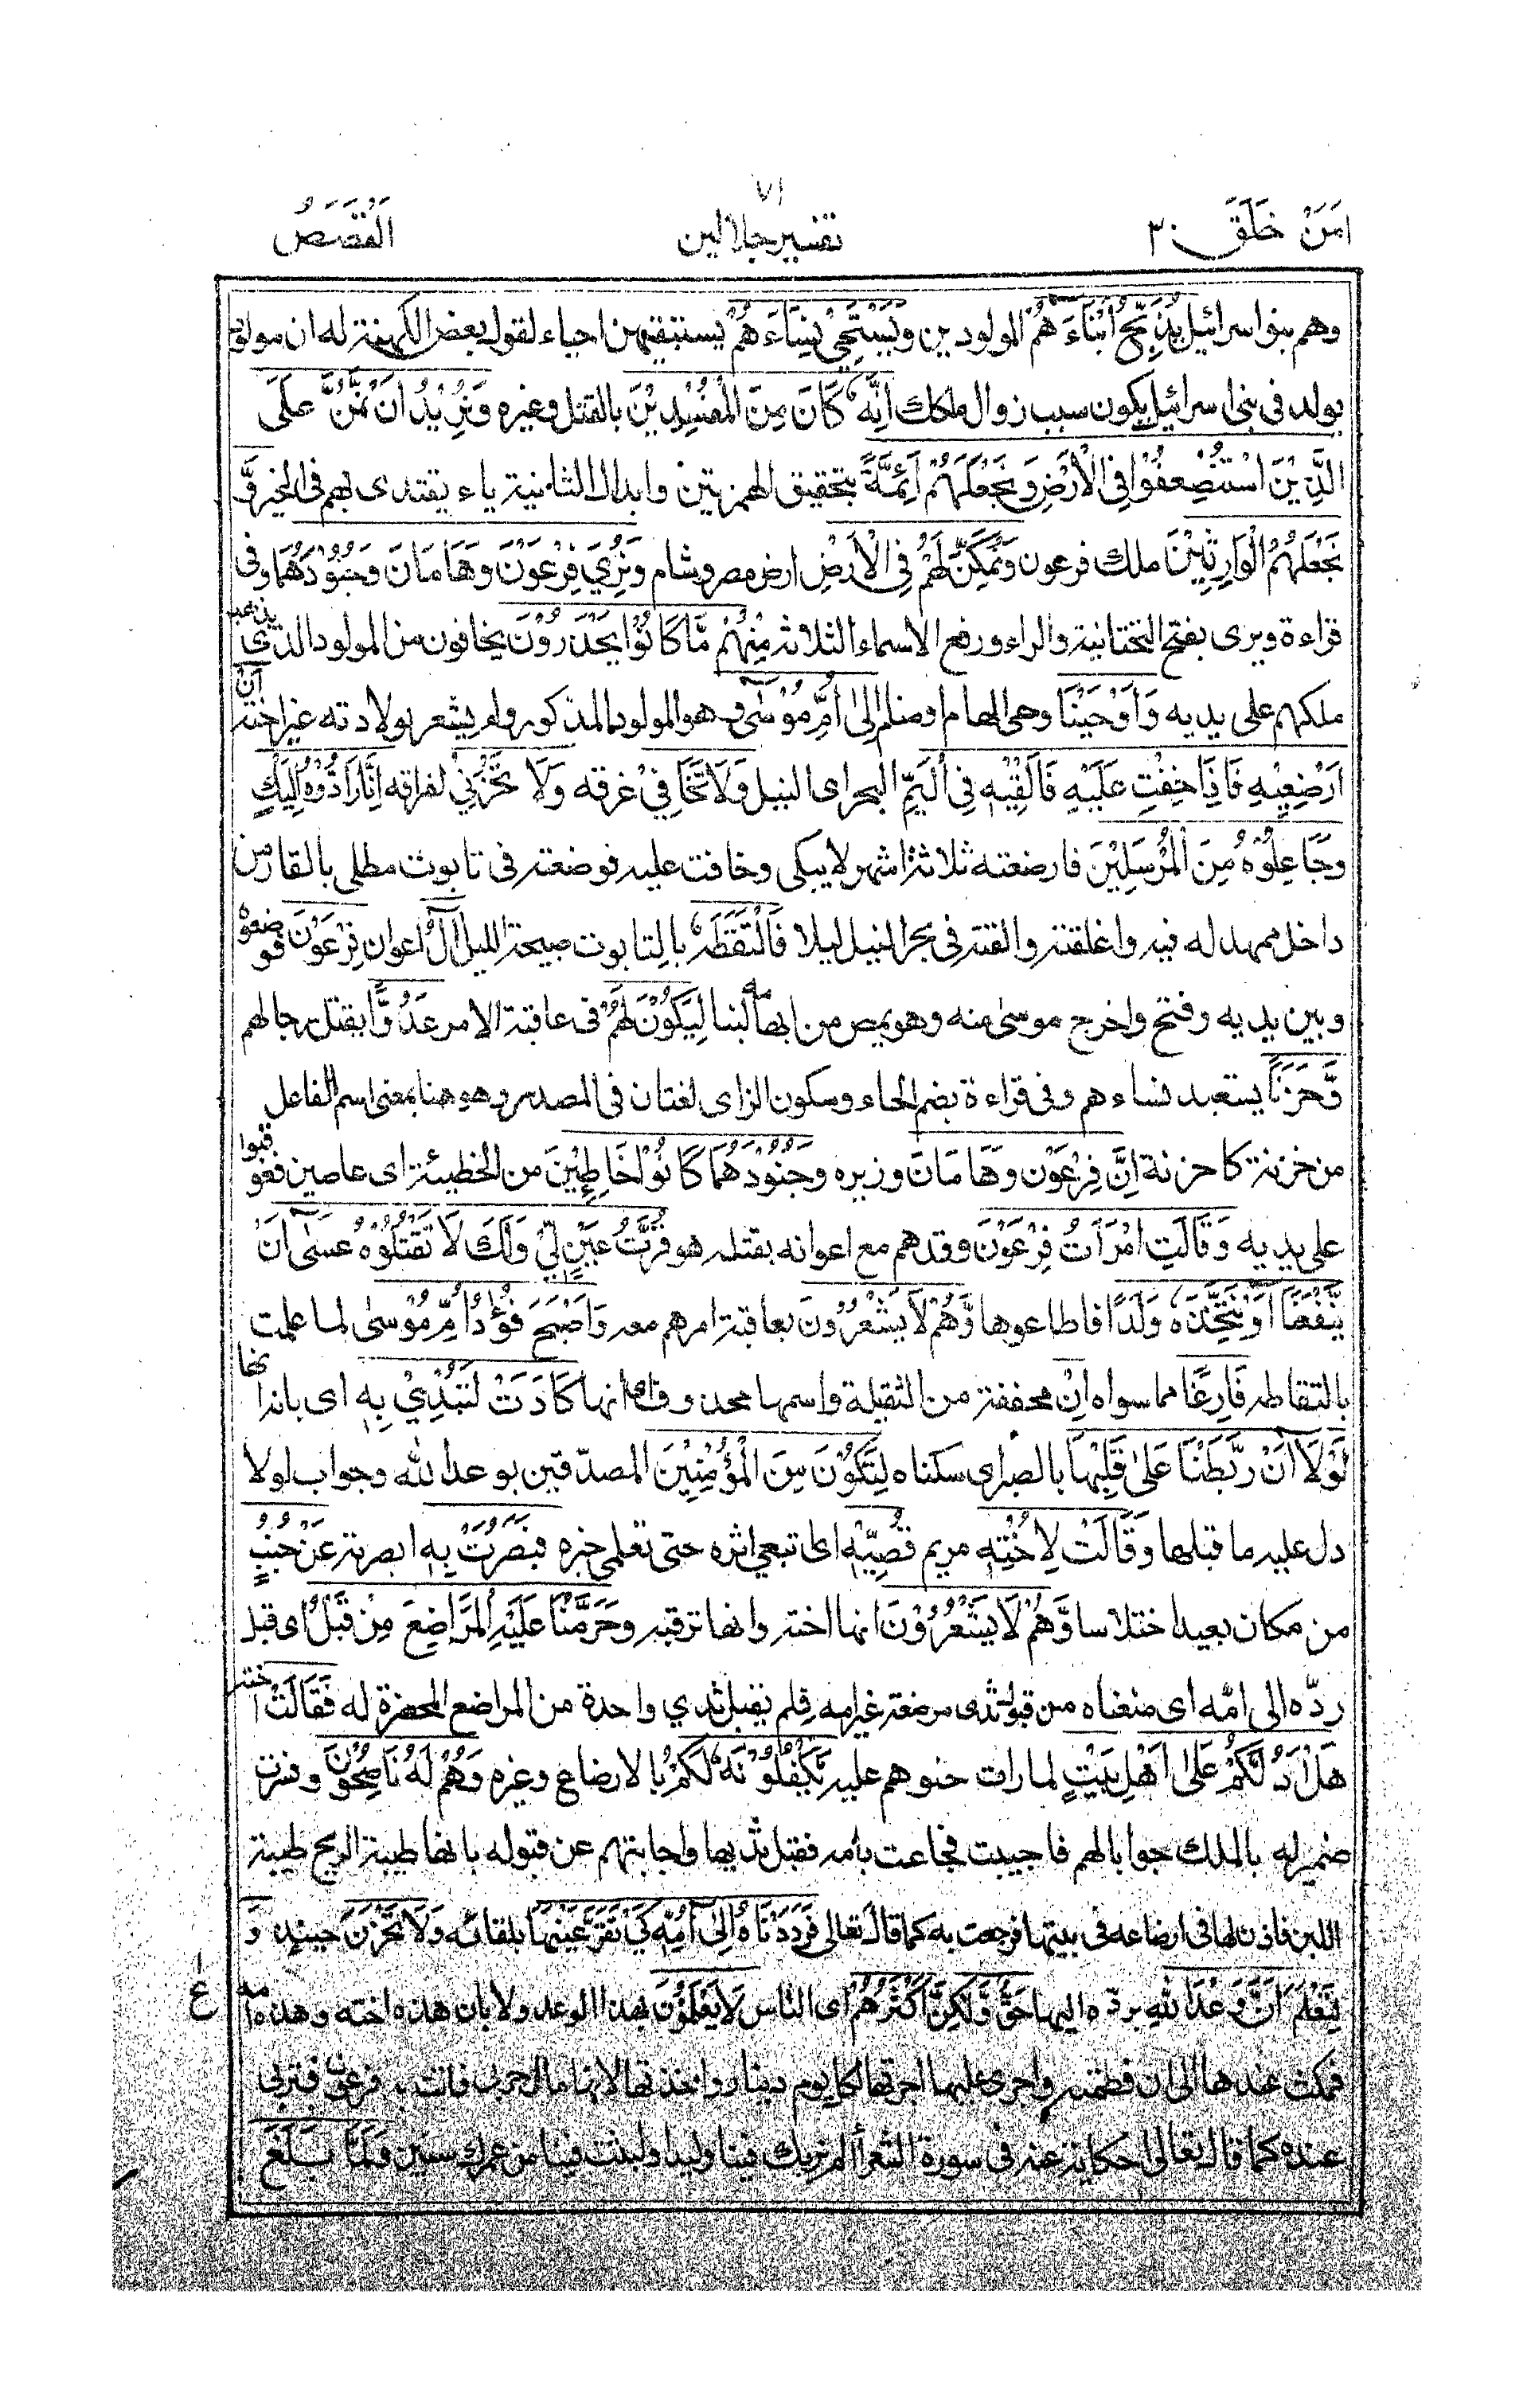 ٧١
اَمَّنْ خَلَقَ ٢٠
تفسير جلالين
اَلْقَصَصُ
وهم بنو اسرائيل يُذَبِّحُ اَبْنَاءَهُمْ المولودين وَيَسْتَحْيٖ نِسَاءَهُمْ يستبقيهن احياء لقول بعض الكهنة له ان مولودا
يولد فى بنى اسرائيل يكون سبب زوال ملكك اِنَّهٗ كَانَ مِنَ الْمُفْسِدِيْنَ بالقتل وغيره وَنُرِيْدُ اَنْ نَّمُنَّ عَلَى
الَّذِيْنَ اسْتُضْعِفُوْا فِى الْاَرْضِ وَنَجْعَلَهُمْ اَئِمَّةً بتحقيق الهمزتين وابدال الثانية ياء يقتدى بهم فى الخير وَّ
نَجْعَلَهُمُ الْوَارِثِيْنَ ملك فرعون وَنُمَكِّنَ لَهُمْ فِى الْاَرْضِ ارض مصر وشام وَنُرِيَ فِرْعَوْنَ وَهَامَانَ وَجُنُوْدَهُمَا وفى
قراءة ويرى بفتح التحتانية والراء ورفع الاسماء الثلاثة مِنْهُمْ مَّا كَانُوْا يَحْذَرُوْنَ يخافون من المولود الذى يذهب
ملكهم على يديه وَاَوْحَيْنَا وحى الهام او منام اِلٰى اُمِّ مُوْسٰٓى وهو المولود المذكور ولم يشعر بولادته غير اخته اَنْ
اَرْضِعِيْهِ فَاِذَا خِفْتِ عَلَيْهِ فَاَلْقِيْهِ فِى الْيَمِّ البحر اى النيل وَلَا تَخَافِيْ غرقه وَلَا تَحْزَنِيْ لفراقه اِنَّا رَادُّوْهُ اِلَيْكِ
وَجَاعِلُوْهُ مِنَ الْمُرْسَلِيْنَ فارضعته ثلاثة اشهر لا يبكى وخافت عليه فوضعته فى تابوت مطلى بالقار من
داخل ممهد له فيه واغلقته والقته فى بحر النيل ليلا فَالْتَقَطَهٗ بالتابوت صبيحة الليل اٰلُ اعوان فِرْعَوْنَ فوضعوه
وبين يديه وفتح واخرج موسى منه وهو يمص من ابهامه لبنا لِيَكُوْنَ لَهُمْ فى عاقبة الامر عَدُوًّا يقتل رجالهم
وَّحَزَنًا يستعبد نساءهم وفى قراءة بضم الحاء وسكون الزاى لغتان فى المصدر وهو هنا بمعنى اسم الفاعل
من حزنه كاحزنه اِنَّ فِرْعَوْنَ وَهَامَانَ وزيره وَجُنُوْدَهُمَا كَانُوْا خَاطِئِيْنَ من الخطيئة اى عاصين فعوقبوا
على يديه وَقَالَتِ امْرَاَتُ فِرْعَوْنَ وقد هم مع اعوانه بقتله هو قُرَّتُ عَيْنٍ لِّيْ وَلَكَ لَا تَقْتُلُوْهُ عَسٰٓى اَنْ
يَّنْفَعَنَآ اَوْ نَتَّخِذَهٗ وَلَدًا فاطاعوها وَّهُمْ لَا يَشْعُرُوْنَ بعاقبة امرهم معه وَاَصْبَحَ فُؤَادُ اُمِّ مُوْسٰى لما علمت
بالتقاطه فَارِغًا مما سواه اِنْ مخففة من الثقيلة واسمها محذوف اى انها كَادَتْ لَتُبْدِيْ بِهٖ اى بانه ابنها
لَوْلَآ اَنْ رَّبَطْنَا عَلٰى قَلْبِهَا بالصبر اى سكناه لِتَكُوْنَ مِنَ الْمُؤْمِنِيْنَ المصدّقين بوعد الله وجواب لولا
دل عليه ما قبلها وَقَالَتْ لِاُخْتِهٖ مريم قُصِّيْهِ اى اتبعى اثره حتى تعلمى خبره فَبَصُرَتْ بِهٖ ابصرته عَنْ جُنُبٍ
من مكان بعيد اختلاسا وَّهُمْ لَا يَشْعُرُوْنَ انها اخته وانها ترقبه وَحَرَّمْنَا عَلَيْهِ الْمَرَاضِعَ مِنْ قَبْلُ اى قبل
ردّه الى امّه اى منعناه من قبول ثدى مرضعة غير امه فلم يقبل ثدي واحدة من المراضع المحضرة له فَقَالَتْ اخته
هَلْ اَدُلُّكُمْ عَلٰٓى اَهْلِ بَيْتٍ لما رات حنوهم عليه يَّكْفُلُوْنَهٗ لَكُمْ بالارضاع وغيره وَهُمْ لَهٗ نَاصِحُوْنَ وفسرت
ضمير له بالملك جوابا لهم فاجيبت فجاءت بأمه فقبل ثديها واجابتهم عن قبوله بانها طيبة الريح طيبة
اللبن فاذن لها فى ارضاعه فى بيتها فرجعت به كما قال تعالى فَرَدَدْنَاهُ اِلٰٓى اُمِّهٖ كَيْ تَقَرَّ عَيْنُهَا بلقائه وَلَا تَحْزَنَ حينئذ وَ
لِتَعْلَمَ اَنَّ وَعْدَ اللّٰهِ بردّه اليها حَقٌّ وَّلٰكِنَّ اَكْثَرَهُمْ اى الناس لَا يَعْلَمُوْنَ بهذا الوعد ولا بان هذه اخته وهذه امه
ع
فمكث عندها الى ان فطمته واجرى عليها اجرتها لكل يوم دينار واخذتها لانها مال حربى فاتت به فرعون فتربى
عنده كما قال تعالى حكاية عنه فى سورة الشعرآ الم نربك فينا وليدا ولبثت فينا من عمرك سنين وَلَمَّا بَلَغَ